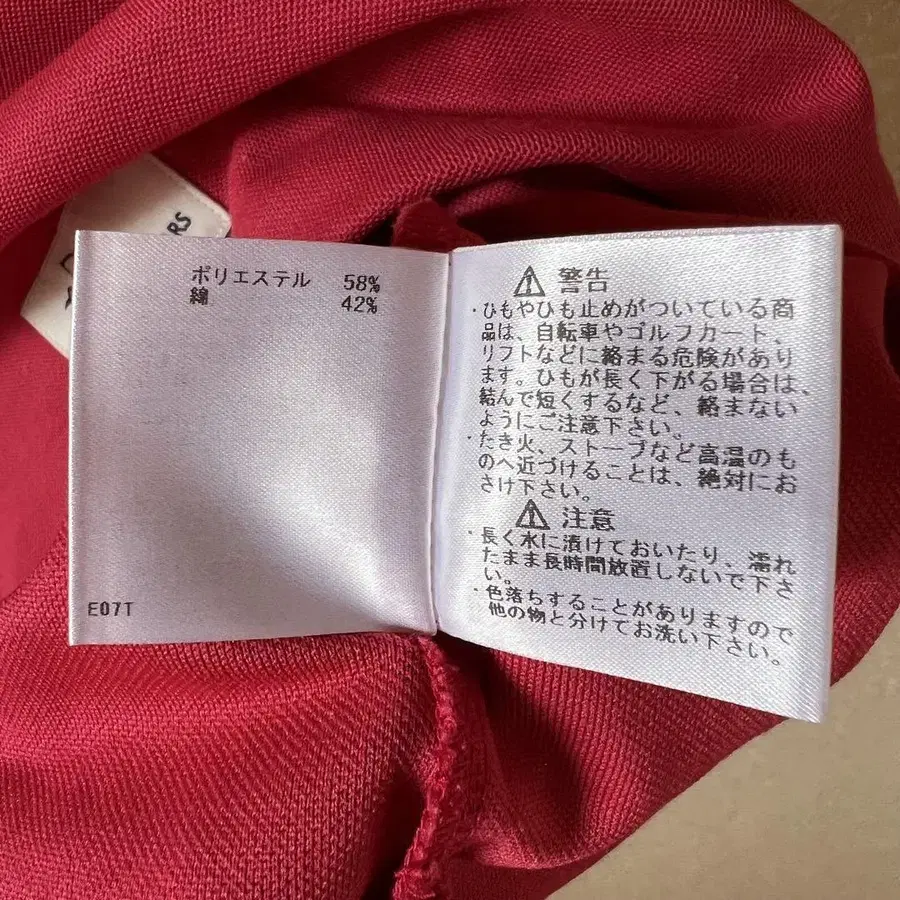 RS
ポリエステル 58%
綿 42%
E07T
警告
・ひもやひも止めがついている商
品は、自転車やゴルフカート、
リフトなどに絡まる危険があり
ます。ひもが長く下がる場合は、
結んで短くするなど、絡まない
ようにご注意下さい。
・たき火、ストーブなど高温のも
のへ近づけることは、絶対にお
さけ下さい。
注意
・長く水に漬けておいたり、濡れ
たまま長時間放置しないで下さ
い。
・色落ちすることがありますので
他の物と分けてお洗い下さい。